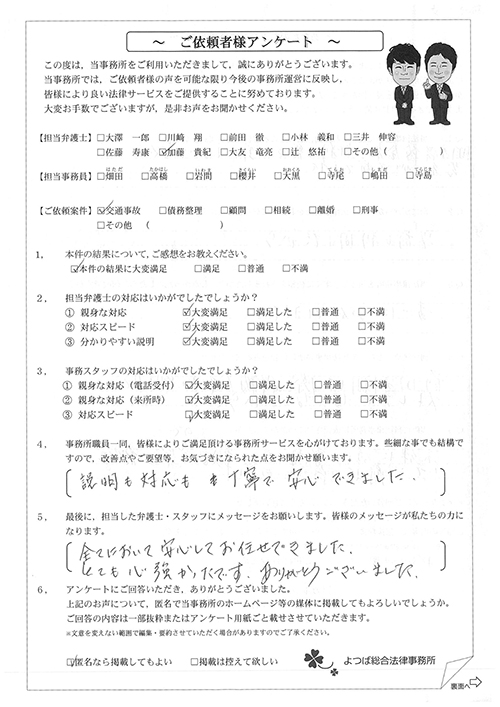 ～ ご依頼者様アンケート ～
この度は，当事務所をご利用いただきまして，誠にありがとうございます。
当事務所では，ご依頼者様の声を可能な限り今後の事務所運営に反映し，
皆様により良い法律サービスをご提供することに努めております。
大変お手数でございますが，是非お声をお聞かせください。
【担当弁護士】□大澤 一郎 □川﨑 翔 □前田 徹 □小林 義和 □三井 伸容
□佐藤 寿康 ☑加藤 貴紀 □大友 竜亮 □辻 悠祐 □その他（ ）
【担当事務員】□畑田 □高橋 □岩間 □櫻井 □大黒 □寺尾 □嶋田 □寺島
【ご依頼案件】☑交通事故 □債務整理 □顧問 □相続 □離婚 □刑事
□その他 （ ）
1． 本件の結果について，ご感想をお教えください。
☑本件の結果に大変満足 □満足 □普通 □不満
2． 担当弁護士の対応はいかがでしたでしょうか？
① 親身な対応 ☑大変満足 □満足した □普通 □不満
② 対応スピード ☑大変満足 □満足した □普通 □不満
③ 分かりやすい説明 ☑大変満足 □満足した □普通 □不満
3． 事務スタッフの対応はいかがでしたでしょうか？
① 親身な対応（電話受付） ☑大変満足 □満足した □普通 □不満
② 親身な対応（来所時） ☑大変満足 □満足した □普通 □不満
③ 対応スピード ☑大変満足 □満足した □普通 □不満
4． 事務所職員一同，皆様によりご満足頂ける事務所サービスを心がけております。些細な事でも結構で
すので，改善点やご要望等，お気づきになられた点をお聞かせ願います。
説明も対応も 丁寧で 安心 できました．
5． 最後に，担当した弁護士・スタッフにメッセージをお願いします。皆様のメッセージが私たちの力に
なります。
全てにおいて 安心して お任せできました．
とても心強かったです．ありがとうございました．
6． アンケートにご回答いただき，ありがとうございました。
上記のお声について，匿名で当事務所のホームページ等の媒体に掲載してもよろしいでしょうか。
ご回答の内容は一部抜粋またはアンケート用紙ごと載せさせていただきます。
※文意を変えない範囲で編集・要約させていただく場合がありますのでご了承ください。
☑匿名なら掲載してもよい □掲載は控えて欲しい よつば総合法律事務所
裏面へ